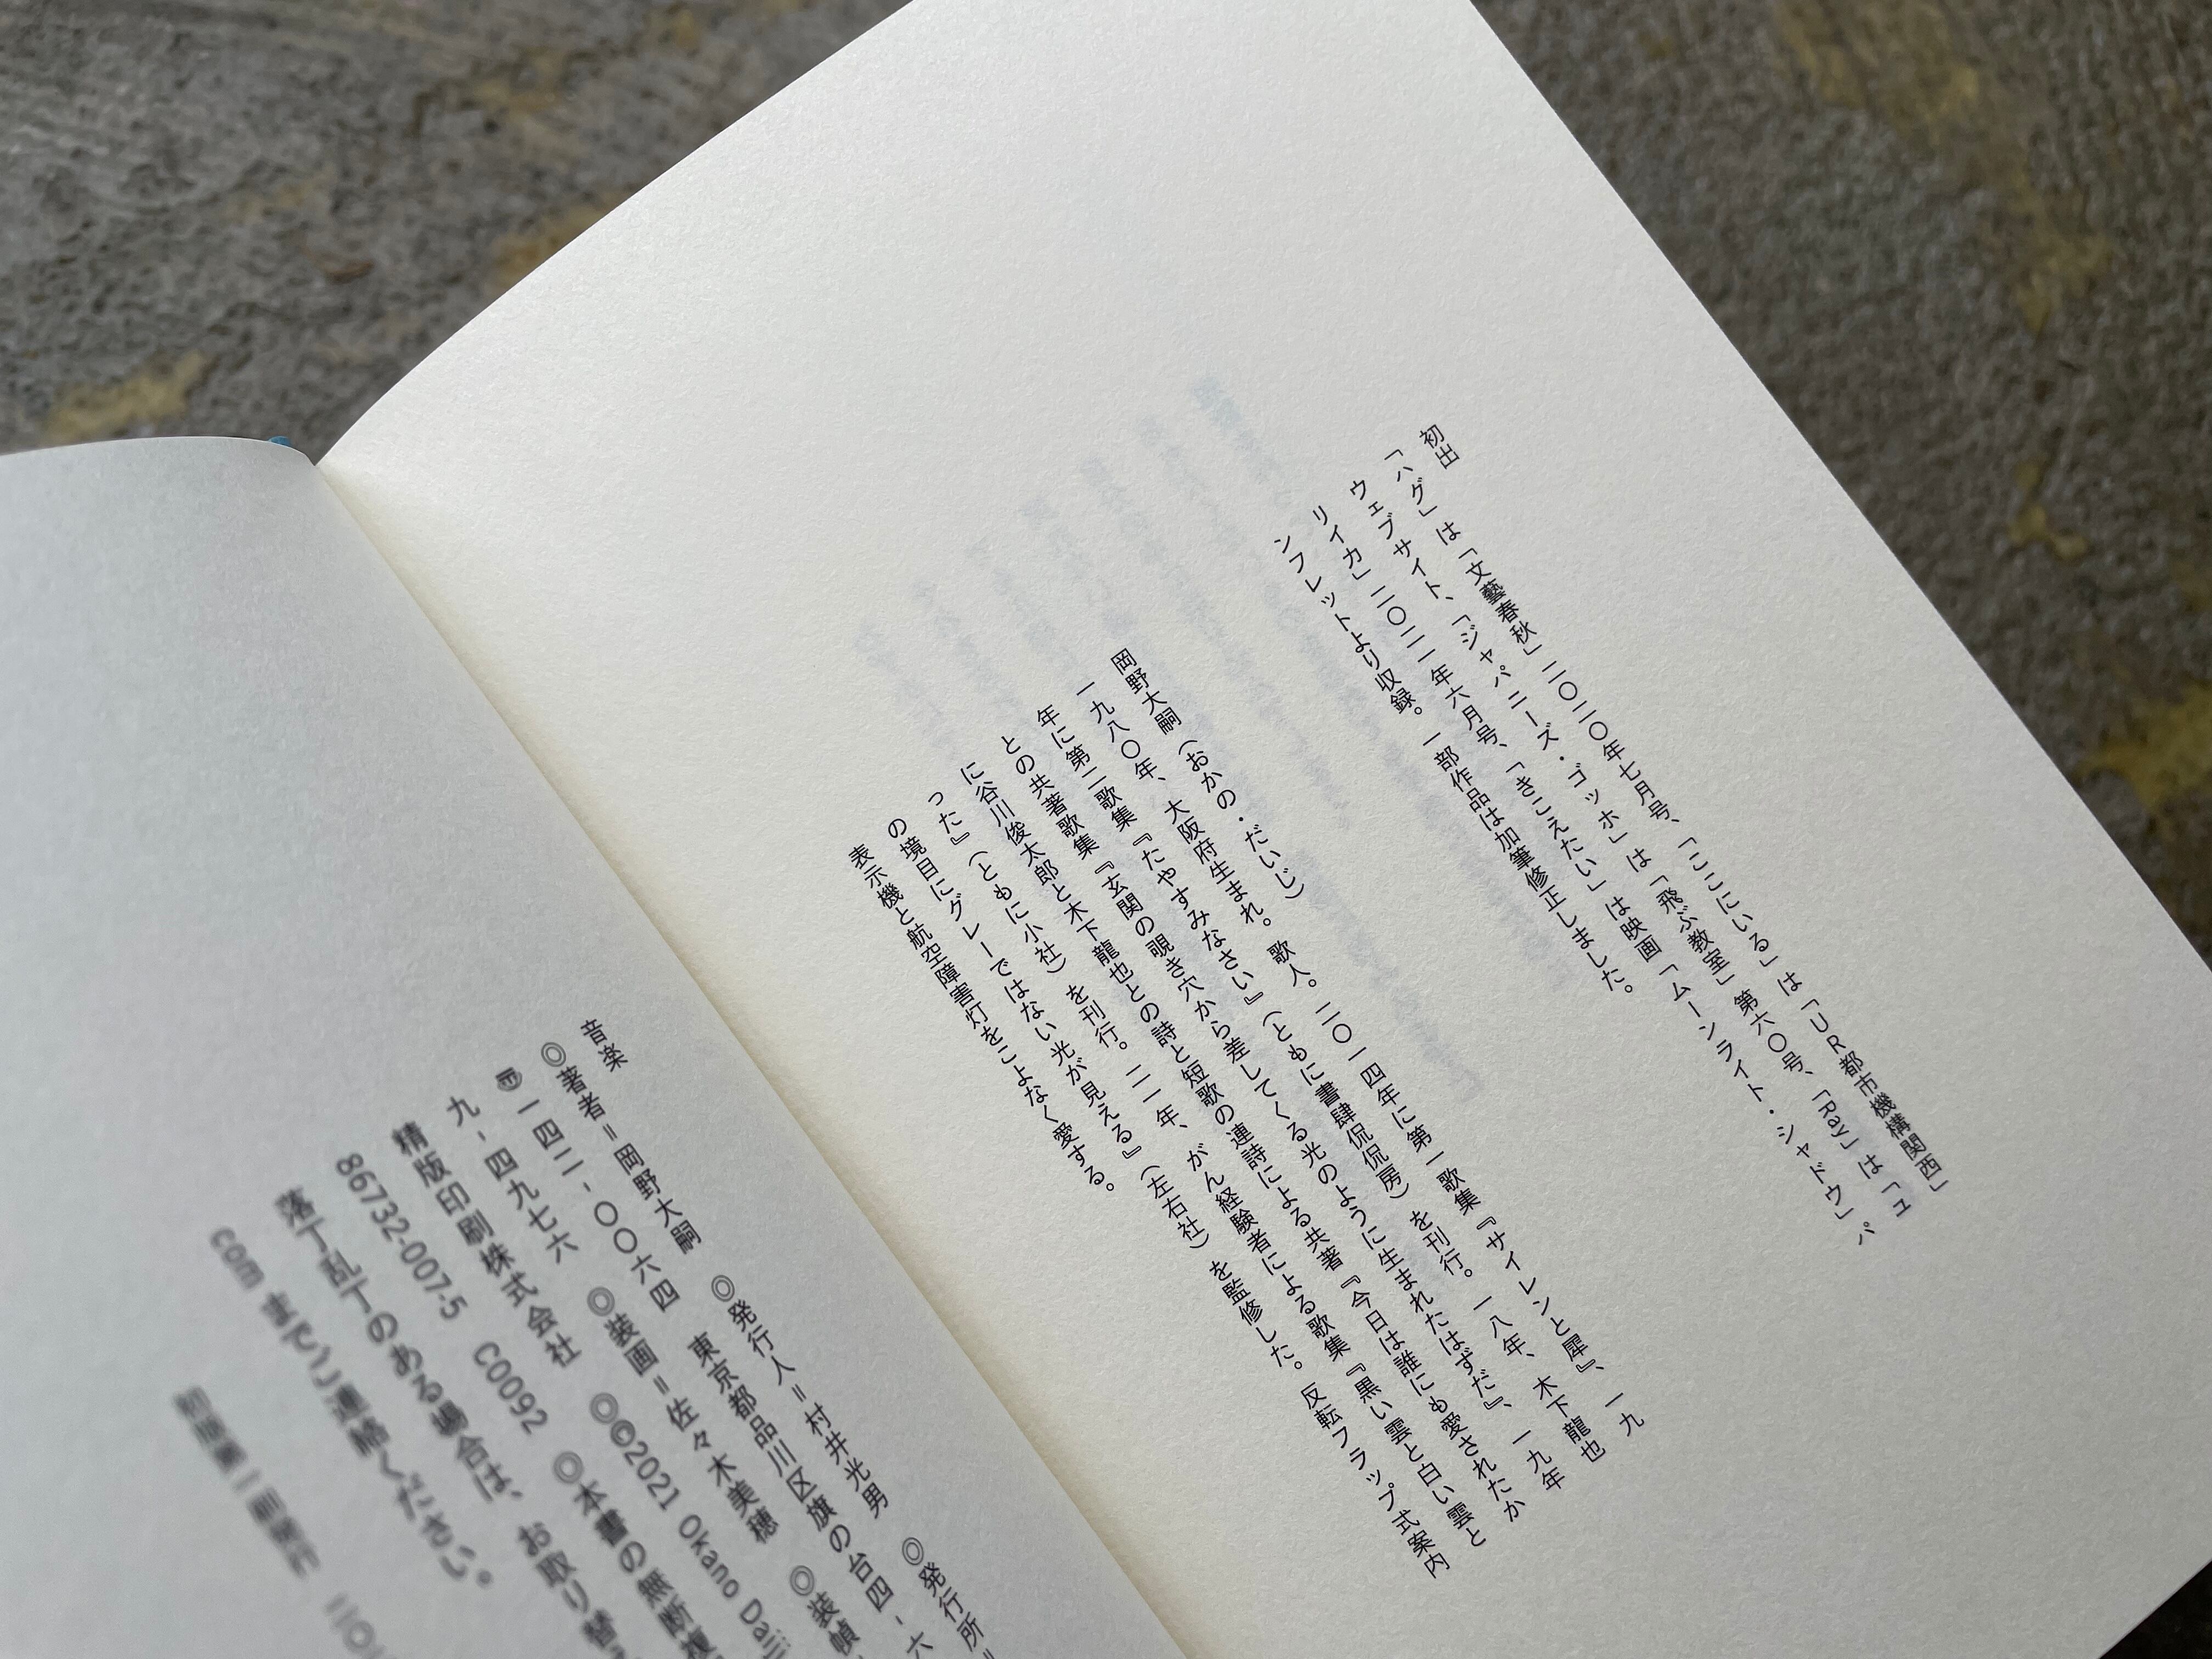 初出
「ハグ」は「文藝春秋」二〇二〇年七月号、「ここにいる」は「UR都市機構関西」
ウェブサイト、「ジャパニーズ・ゴッホ」は「飛ぶ教室」第六〇号、「Ray」は「ユ
リイカ」二〇二一年六月号、「きこえたい」は映画「ムーンライト・シャドウ」パ
ンフレットより収録。一部作品は加筆修正しました。
岡野大嗣（おかの・だいじ）
一九八〇年、大阪府生まれ。歌人。二〇一四年に第一歌集『サイレンと犀』、一九
年に第二歌集『たやすみなさい』（ともに書肆侃侃房）を刊行。一八年、木下龍也
との共著歌集『玄関の覗き穴から差してくる光のように生まれたはずだ』、一九年
に谷川俊太郎と木下龍也との詩と短歌の連詩による共著『今日は誰にも愛されたか
った』（ともに小社）を刊行。二一年、がん経験者による歌集『黒い雲と白い雲と
の境目にグレーではない光が見える』（左右社）を監修した。反転フラップ式案内
表示機と航空障害灯をこよなく愛する。
音楽
◎著者=岡野大嗣 ◎発行人=村井光男 ◎発行所=
〒一四二-〇〇六四 東京都品川区旗の台四-六
九-四九七六 ◎装画=佐々木美穂 ◎装幀
精版印刷株式会社 ◎©2021 Okamo Daiji
86732-007-5 C0092 ◎本書の無断複
落丁乱丁のある場合は、お取り替
com までご連絡ください。
初版第一刷発行